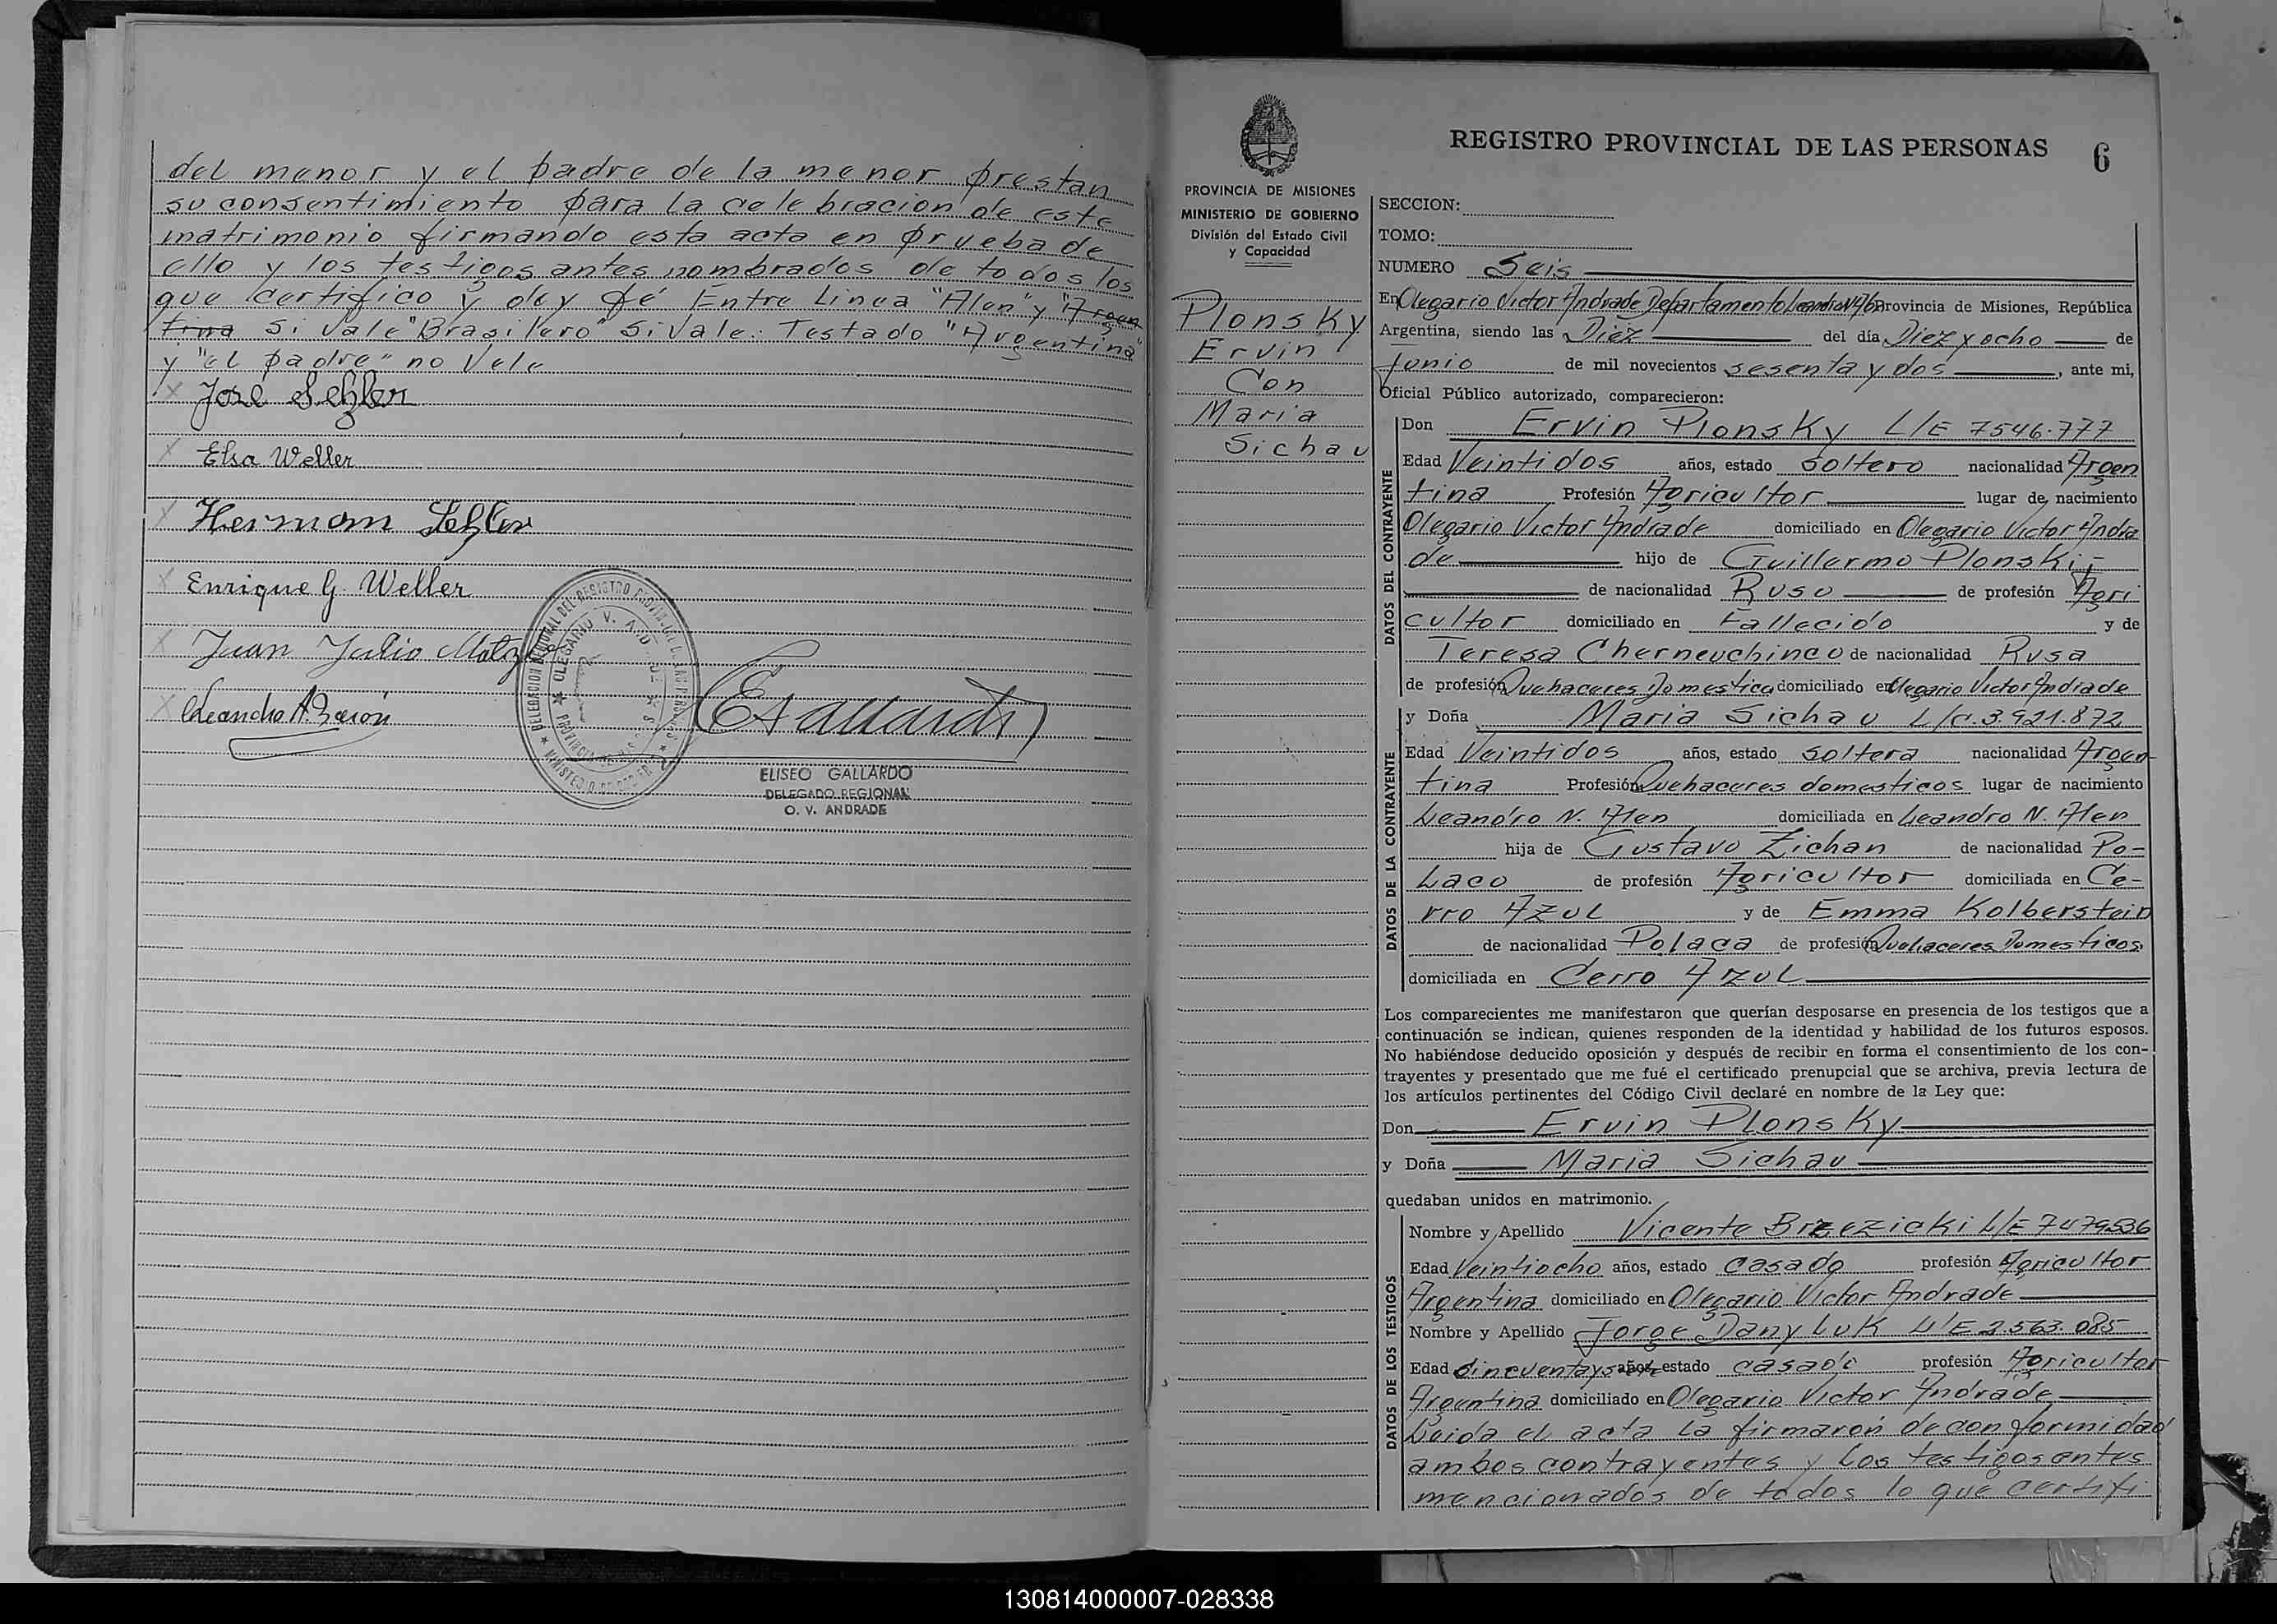 del menor y el padre de la menor prestan
su consentimiento para la celebración de este
matrimonio firmando esta acta en prueba de
ello y los testigos antes nombrados de todos los
que certifico y doy fé Entre Linea "Alen" y "Argen
tina si Vale "Brasilero" si Vale: Testado "Argentina"
y "el padre" no Vale
Jose Sehler
Elsa Weller
Herman Sehler
Enrique G. Weller
Juan Julio
Leandro A.
ELISEO GALLARDO
DELEGADO REGIONAL
O. V. ANDRADE
PROVINCIA DE MISIONES
MINISTERIO DE GOBIERNO
División del Estado Civil
y Capacidad
Plonsky
Ervin
Con
Maria
Sichau
REGISTRO PROVINCIAL DE LAS PERSONAS 6
SECCION:
TOMO:
NUMERO Seis
En Olegario Victor Andrade Departamento Leandro N Provincia de Misiones, República
Argentina, siendo las Diez del día Diez y ocho de
Junio de mil novecientos sesenta y dos, ante mi,
Oficial Público autorizado, comparecieron:
DATOS DEL CONTRAYENTE
Don Ervin Plonsky L/E 7546.777
Edad Veintidos años, estado Soltero nacionalidad Argen
tina Profesión Agricultor lugar de nacimiento
Olegario Victor Andrade domiciliado en Olegario Victor Andra
de hijo de Guillermo Plonski
de nacionalidad Ruso de profesión Agri
cultor domiciliado en Fallecido y de
Teresa Cherneuchinco de nacionalidad Rusa
de profesión Quehaceres Domestica domiciliado en Olegario Victor Andrade
DATOS DE LA CONTRAYENTE
y Doña Maria Sichau L/C. 3.921.872
Edad Veintidos años, estado Soltera nacionalidad Argen
tina Profesión Quehaceres domesticos lugar de nacimiento
Leandro N. Alen domiciliada en Leandro N. Alen
hija de Gustavo Zichan de nacionalidad Po-
Laco de profesión Agricultor domiciliada en Ce-
rro Azul y de Emma Kolberstein
de nacionalidad Polaca de profesión Quehaceres Domesticos
domiciliada en Cerro Azul
Los comparecientes me manifestaron que querían desposarse en presencia de los testigos que a
continuación se indican, quienes responden de la identidad y habilidad de los futuros esposos.
No habiéndose deducido oposición y después de recibir en forma el consentimiento de los con-
trayentes y presentado que me fué el certificado prenupcial que se archiva, previa lectura de
los artículos pertinentes del Código Civil declaré en nombre de la Ley que:
Don Ervin Plonsky
y Doña Maria Sichau
quedaban unidos en matrimonio.
DATOS DE LOS TESTIGOS
Nombre y Apellido Vicente Brzezicki L/E 7479536
Edad Veintiocho años, estado Casado profesión Agricultor
Argentina domiciliado en Olegario Victor Andrade
Nombre y Apellido Jorge Danyluk L/E 2.563.085
Edad Cincuenta y años, estado casado profesión Agricultor
Argentina domiciliado en Olegario Victor Andrade
Leida el acta la firmarón de conformidad
ambos contrayentes y los testigos antes
mencionados de todos lo que certifi
130814000007-028338